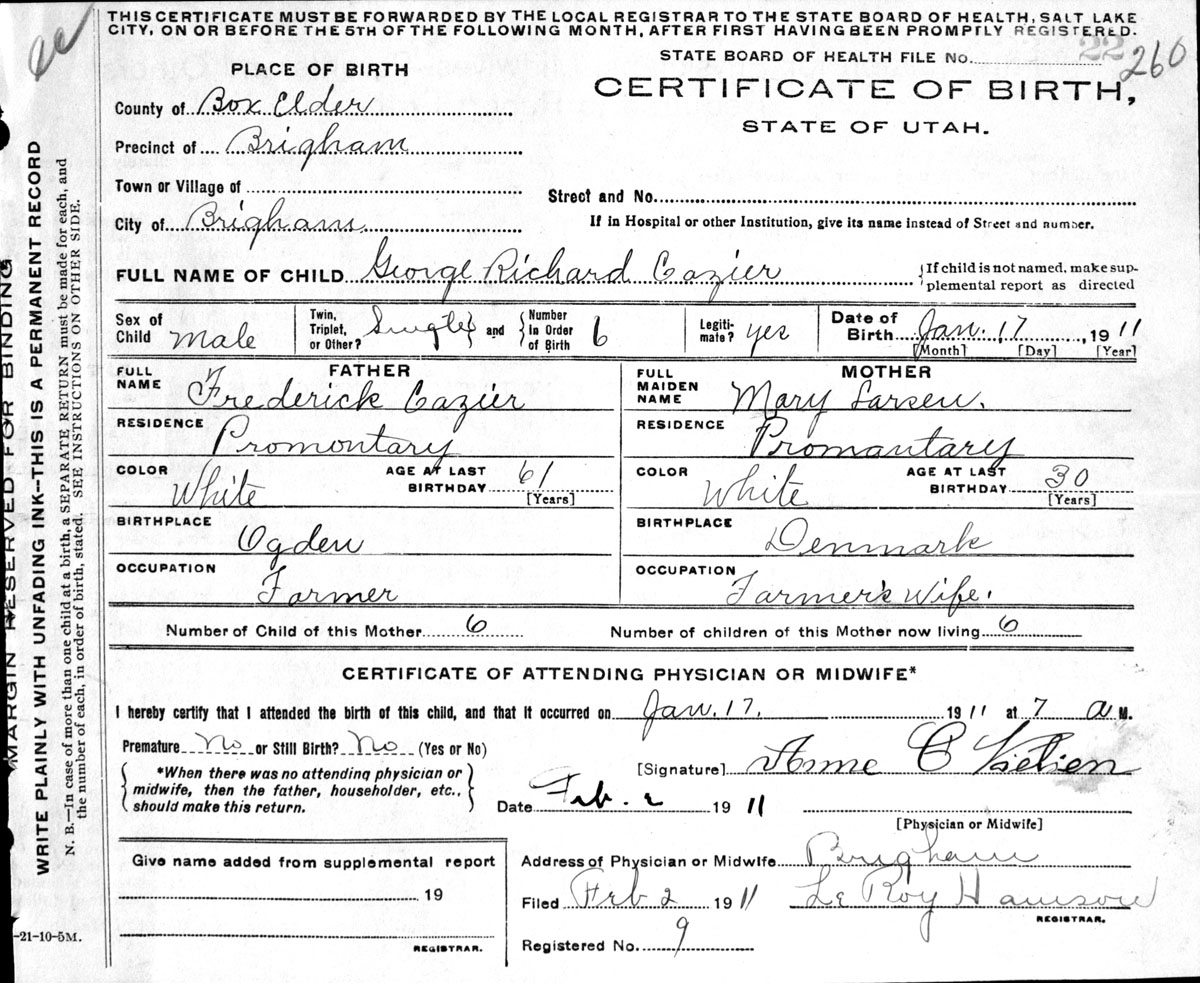 THIS CERTIFICATE MUST BE FORWARDED BY THE LOCAL REGISTRAR TO THE STATE BOARD OF HEALTH, SALT LAKE
CITY, ON OR BEFORE THE 5TH OF THE FOLLOWING MONTH, AFTER FIRST HAVING BEEN PROMPTLY REGISTERED.
STATE BOARD OF HEALTH FILE No. 22 260
PLACE OF BIRTH
CERTIFICATE OF BIRTH,
STATE OF UTAH.
County of Box Elder
Precinct of Brigham
Town or Village of
Street and No.
City of Brigham
If in Hospital or other Institution, give its name instead of Street and number.
FULL NAME OF CHILD George Richard Cazier
If child is not named, make sup-
plemental report as directed
Sex of Child Male
Twin, Triplet, or Other? Single and Number In Order of Birth 6
Legiti-mate? yes
Date of Birth Jan. 17, 1911
[Month] [Day] [Year]
FATHER
FULL NAME Frederick Cazier
RESIDENCE Promontary
COLOR White AGE AT LAST BIRTHDAY 61 [Years]
BIRTHPLACE Ogden
OCCUPATION Farmer
MOTHER
FULL MAIDEN NAME Mary Larsen.
RESIDENCE Promantary
COLOR White AGE AT LAST BIRTHDAY 30 [Years]
BIRTHPLACE Denmark
OCCUPATION Farmer's Wife.
Number of Child of this Mother 6 Number of children of this Mother now living 6
CERTIFICATE OF ATTENDING PHYSICIAN OR MIDWIFE*
I hereby certify that I attended the birth of this child, and that it occurred on Jan. 17. 1911 at 7 a M.
Premature No or Still Birth? No (Yes or No)
*When there was no attending physician or
midwife, then the father, householder, etc.,
should make this return.
[Signature] C
Date Feb. 2 1911
[Physician or Midwife]
Give name added from supplemental report
19
REGISTRAR.
Address of Physician or Midwife Brigham
Filed Feb 2 1911 Le Roy
REGISTRAR.
Registered No. 9
MARGIN RESERVED FOR BINDING
WRITE PLAINLY WITH UNFADING INK--THIS IS A PERMANENT RECORD
N. B.—In case of more than one child at a birth, a SEPARATE RETURN must be made for each, and
the number of each, in order of birth, stated. SEE INSTRUCTIONS ON OTHER SIDE.
-21-10-5M.